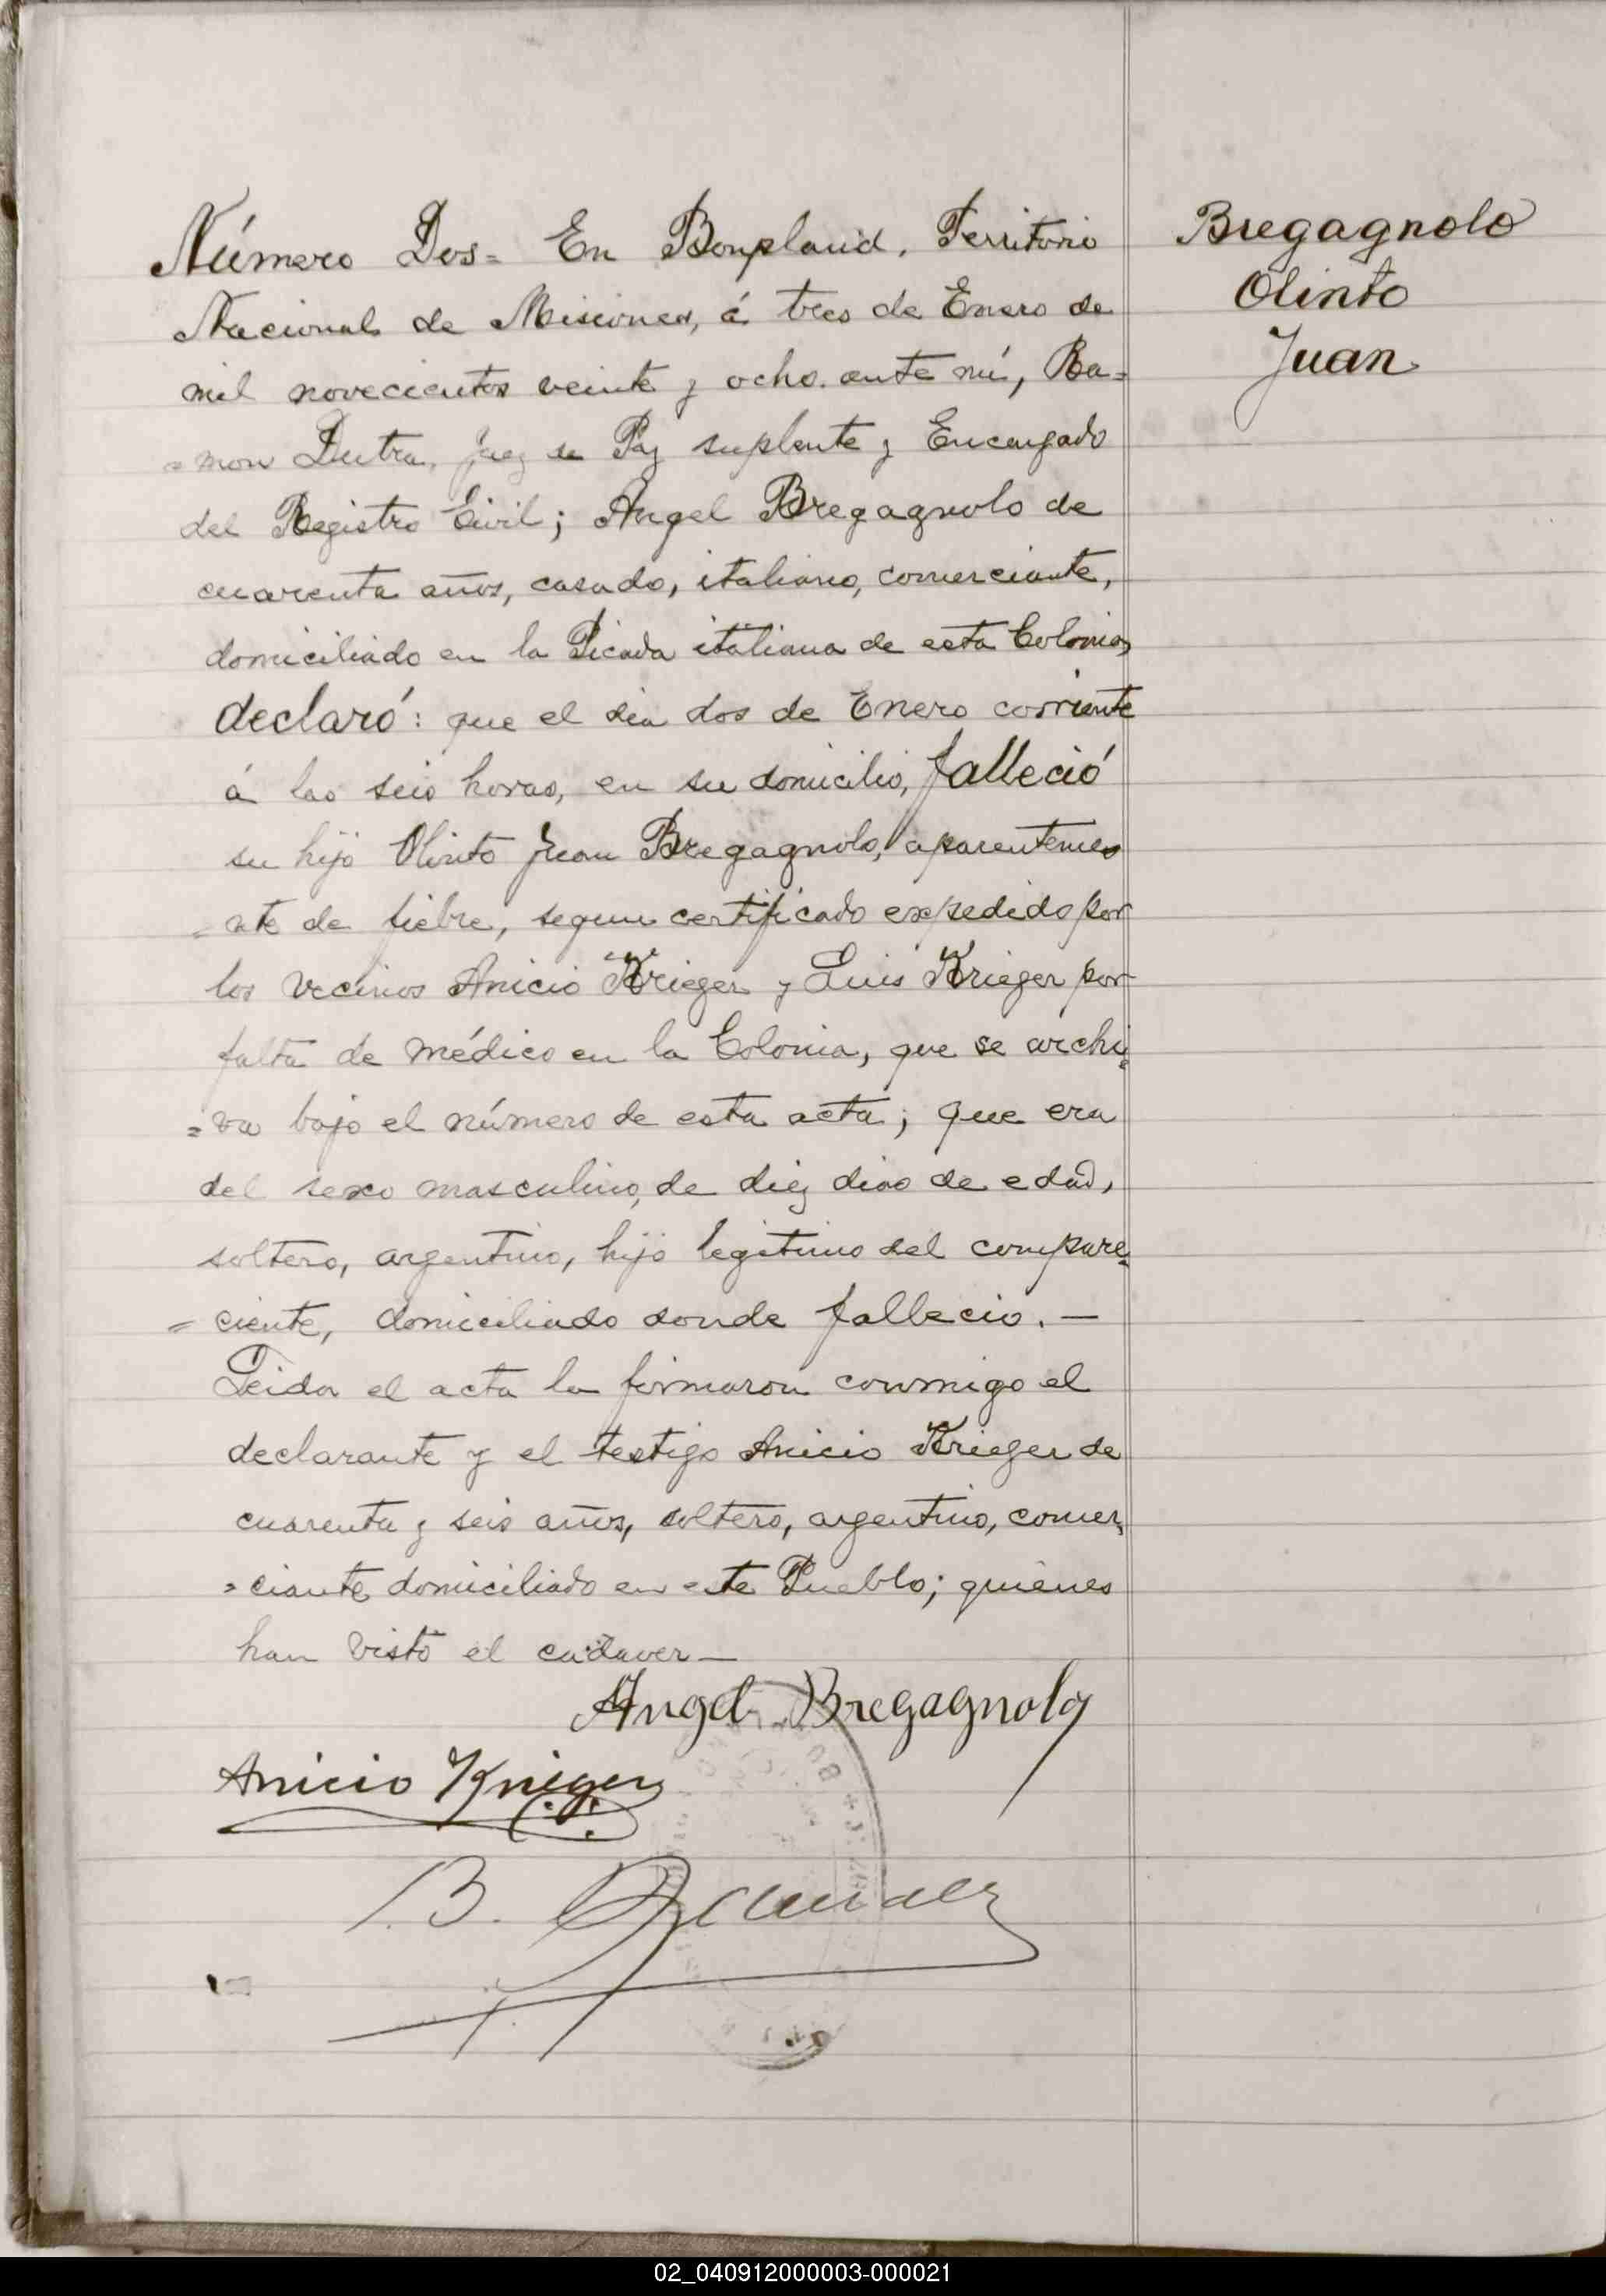 Número Dos= En Bonpland, Territorio
Nacional de Misiones, á tres de Enero de
mil novecientos veinte y ocho. ante mí, Ra=
=mon Dutra, Juez de Paz suplente y Encargado
del Registro Civil; Angel Bregagnolo de
cuarenta años, casado, italiano, comerciante,
domiciliado en la Picada italiana de esta Colonia,
declaró: que el dia dos de Enero corriente
á las seis horas, en su domicilio, falleció
su hijo Olinto Juan Bregagnolo, aparenteme=
=nte de fiebre, segun certificado expedido por
los vecinos Anicio Krieger y Luis Krieger por
falta de médico en la Colonia, que se archi=
=va bajo el número de esta acta; que era
del sexo masculino, de diez dias de edad,
soltero, argentino, hijo legitimo del compare=
=ciente, domiciliado donde fallecio. —
Leida el acta la firmaron conmigo el
declarante y el testigo Anicio Krieger de
cuarenta y seis años, soltero, argentino, comer=
=ciante, domiciliado en este Pueblo; quienes
han visto el cadaver —
Angel Bregagnolo
Anicio Krieger
Bregagnolo
Olinto
Juan
02_040912000003-000021